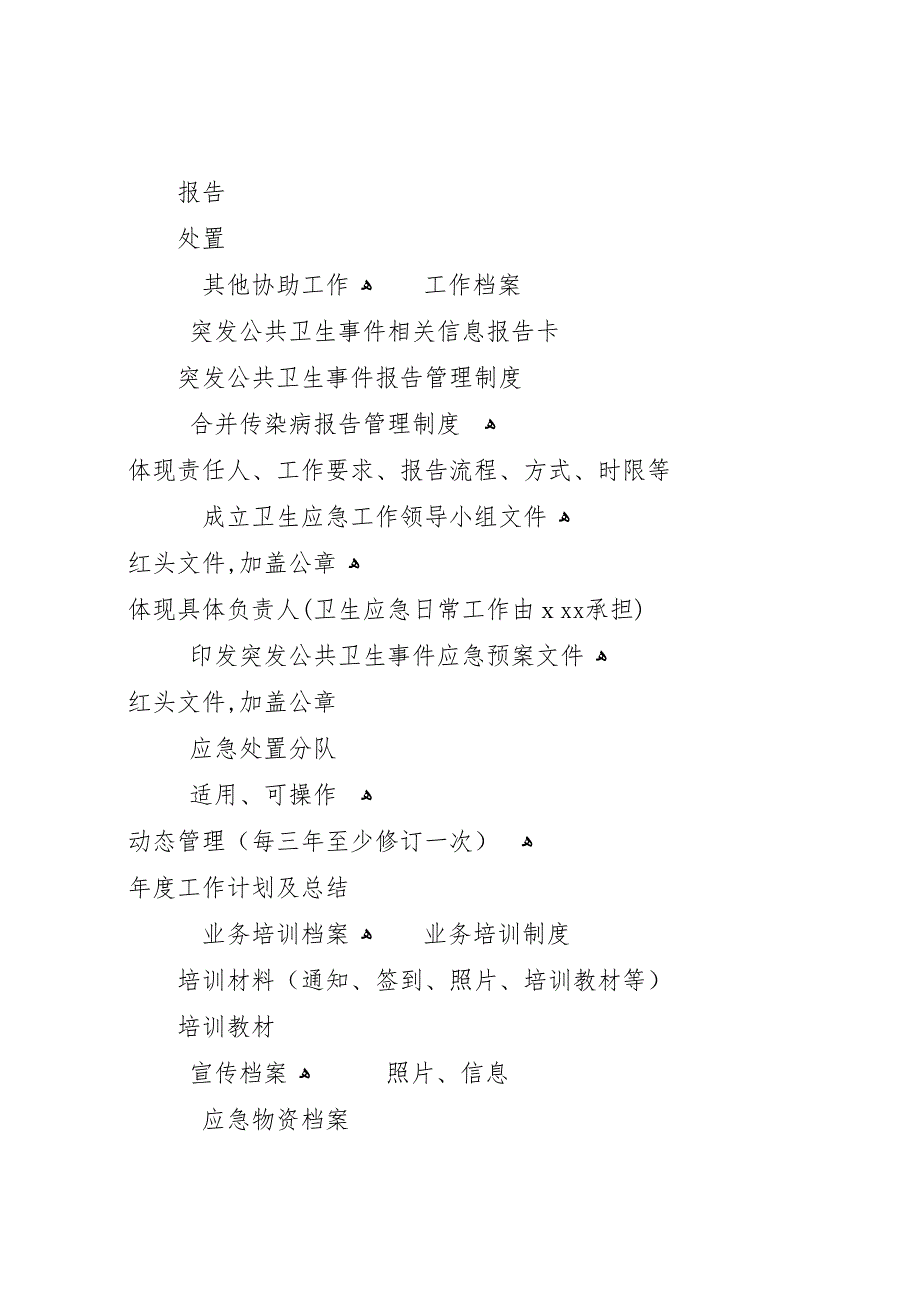 报告
处置
其他协助工作 ﻫ 工作档案
突发公共卫生事件相关信息报告卡
突发公共卫生事件报告管理制度
合并传染病报告管理制度 ﻫ
体现责任人、工作要求、报告流程、方式、时限等
成立卫生应急工作领导小组文件 ﻫ
红头文件,加盖公章 ﻫ
体现具体负责人(卫生应急日常工作由x xx承担)
印发突发公共卫生事件应急预案文件 ﻫ
红头文件,加盖公章
应急处置分队
适用、可操作 ﻫ
动态管理（每三年至少修订一次） ﻫ
年度工作计划及总结
业务培训档案 ﻫ 业务培训制度
培训材料（通知、签到、照片、培训教材等）
培训教材
宣传档案 ﻫ 照片、信息
应急物资档案